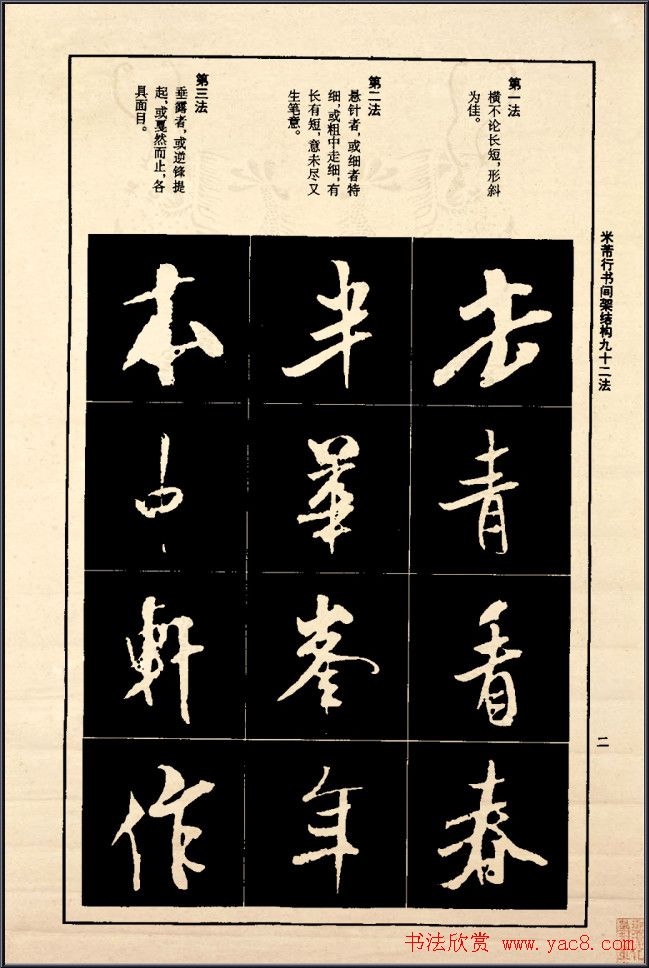 米芾行书间架结构九十二法
第一法
横不论长短，形斜
为佳。
第二法
悬针者，或细者特
细，或粗中走细，有
长有短，意未尽又
生笔意。
第三法
垂露者，或逆锋提
起，或戛然而止，各
具面目。
去青看春
半华峯年
本中軒作
二
书法欣赏 www.yac8.com